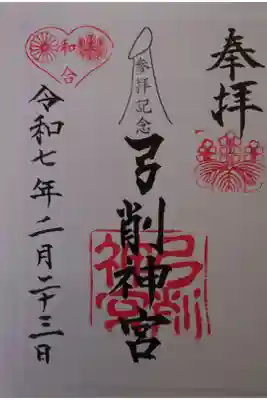 奉拝
参拝記念
弓削神宮
弓削神宮
和合
令和七年二月二十三日